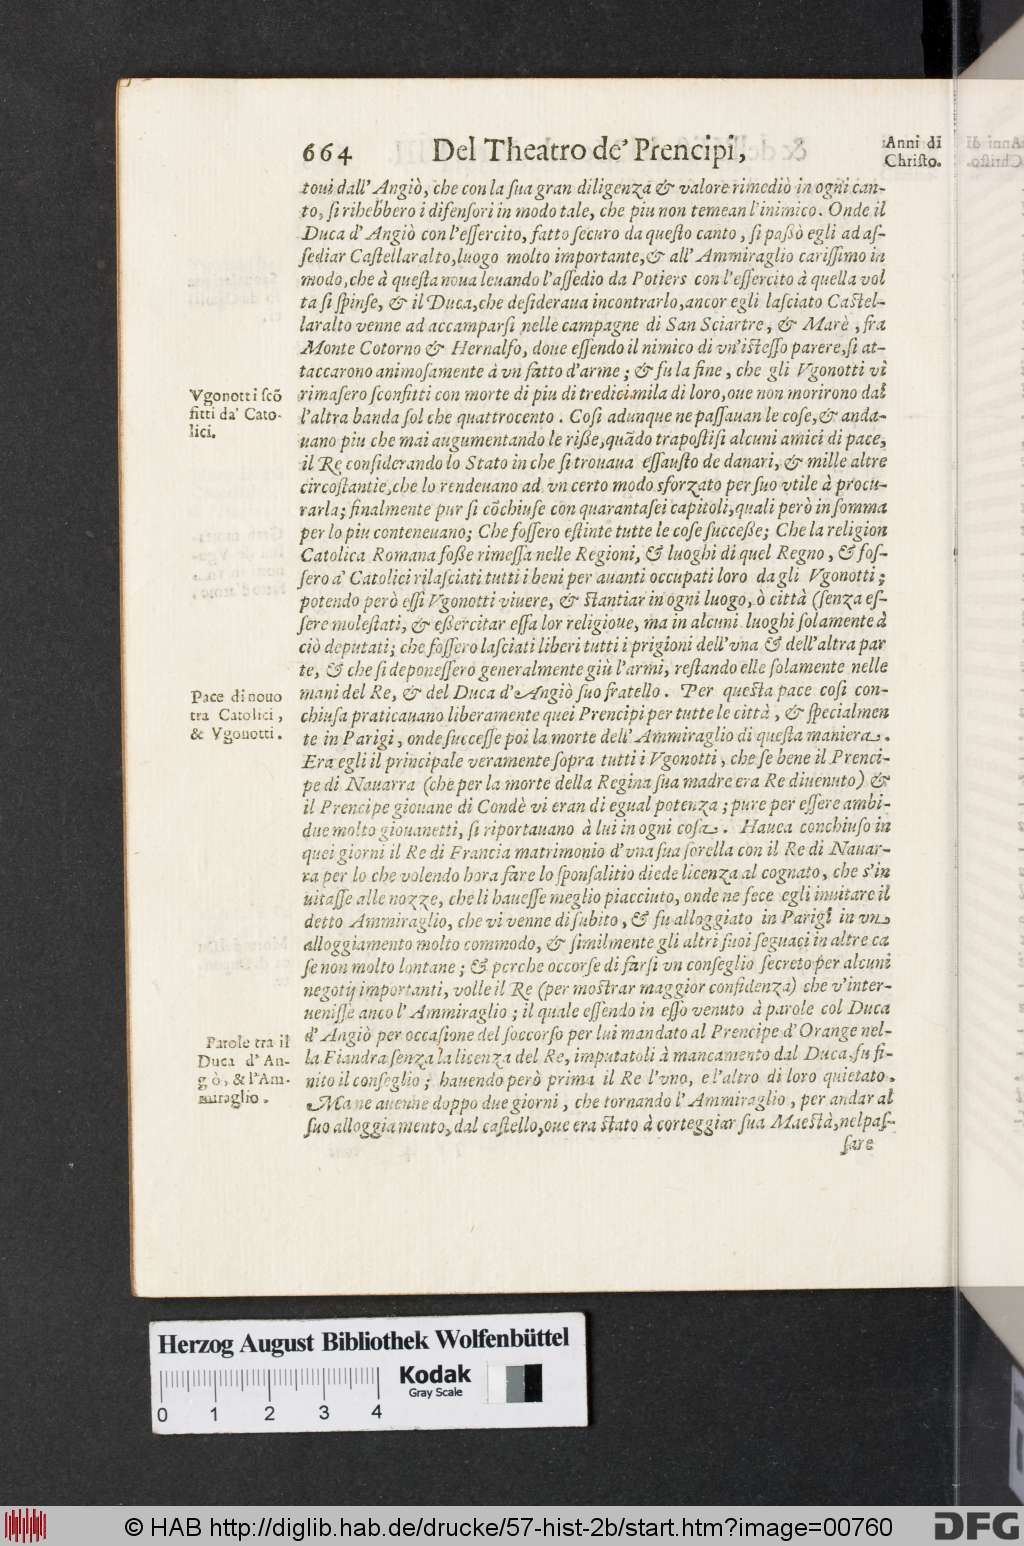 664 Del Theatro de' Prencipi,
Anni di
Christo.
toui dall' Angiò, che con la sua gran diligenza & valore rimediò in ogni can-
to, si rihebbero i difensori in modo tale, che piu non temean l'inimico. Onde il
Duca d' Angiò con l'essercito, fatto securo da questo canto, si passò egli ad as-
sediar Castellaralto, luogo molto importante, & all' Ammiraglio carissimo in
modo, che à questa noua leuando l'assedio da Potiers con l'essercito à quella vol
ta si spinse, & il Duca, che desideraua incontrarlo, ancor egli lasciato Castel-
laralto venne ad accamparsi nelle campagne di San Sciartre, & Marè, fra
Monte Cotorno & Hernalfo, doue essendo il nimico di vn'istesso parere, si at-
taccarono animosamente à vn fatto d'arme; & fu la fine, che gli Vgonotti vi
rimasero sconfitti con morte di piu di tredici mila di loro, oue non morirono dal
l'altra banda sol che quattrocento. Cosi adunque ne passauan le cose, & anda-
uano piu che mai augumentando le risse, quãdo trapostisi alcuni amici di pace,
il Re considerando lo Stato in che si trouaua essausto de danari, & mille altre
circostantie, che lo rendeuano ad vn certo modo sforzato per suo vtile à procu-
rarla; finalmente pur si cõchiuse con quarantasei capitoli, quali però in somma
per lo piu conteneuano; Che fossero estinte tutte le cose successe; Che la religion
Catolica Romana fosse rimessa nelle Regioni, & luoghi di quel Regno, & fos-
sero a' Catolici rilasciati tutti i beni per auanti occupati loro da gli Vgonotti;
potendo però essi Vgonotti viuere, & stantiar in ogni luogo, ò città (senza es-
sere molestati, & essercitar essa lor religioue, ma in alcuni luoghi solamente à
ciò deputati; che fossero lasciati liberi tutti i prigioni dell'vna & dell'altra par
te, & che si deponessero generalmente giù l'armi, restando elle solamente nelle
mani del Re, & del Duca d'Angiò suo fratello. Per questa pace cosi con-
chiusa praticauano liberamente quei Prencipi per tutte le città, & specialmen
te in Parigi, onde successe poi la morte dell' Ammiraglio di questa maniera.
Era egli il principale veramente sopra tutti i Vgonotti, che se bene il Prenci-
pe di Nauarra (che per la morte della Regina sua madre era Re diuenuto) &
il Prencipe giouane di Condè vi eran di egual potenza; pure per essere ambi-
due molto giouanetti, si riportauano à lui in ogni cosa. Hauea conchiuso in
quei giorni il Re di Francia matrimonio d'vna sua sorella con il Re di Nauar-
ra per lo che volendo hora fare lo sponsalitio diede licenza al cognato, che s'in
uitasse alle nozze, che li hauesse meglio piacciuto, onde ne fece egli inuitare il
detto Ammiraglio, che vi venne di subito, & fu alloggiato in Parigi in vn
alloggiamento molto commodo, & similmente gli altri suoi seguaci in altre ca
se non molto lontane; & perche occorse di farsi vn conseglio secreto per alcuni
negotij importanti, volle il Re (per mostrar maggior confidenza) che v'inter-
uenisse anco l' Ammiraglio; il quale essendo in esso venuto à parole col Duca
d' Angiò per occasione del soccorso per lui mandato al Prencipe d'Orange nel-
la Fiandra senza la licenza del Re, imputatoli à mancamento dal Duca, fu fi-
nito il conseglio; hauendo però prima il Re l'vno, e l'altro di loro quietato.
Ma ne auenne doppo due giorni, che tornando l' Ammiraglio, per andar al
suo alloggiamento, dal castello, oue era stato à corteggiar sua Maestà, nel pas-
sare
Vgonotti scõ
fitti da' Cato-
lici.
Pace di nouo
tra Catolici,
& Vgouotti.
Parole tra il
Duca d' An-
gò, & l'Am-
miraglio.
Herzog August Bibliothek Wolfenbüttel
Kodak
Gray Scale
0 1 2 3 4
© HAB http://diglib.hab.de/drucke/57-hist-2b/start.htm?image=00760
DFG